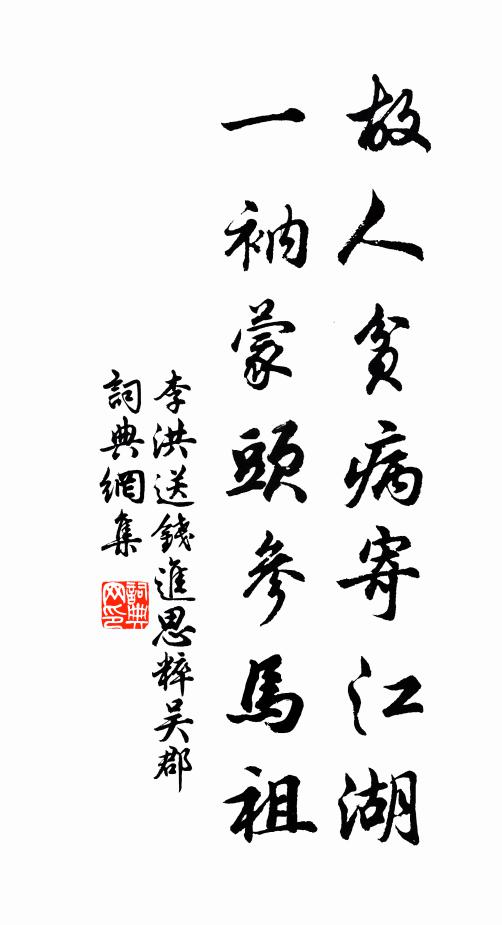 故人貧病寄江湖
一衲蒙頭參馬祖
李洪送錢進思粹吴郡
詞典網集
詞典网印